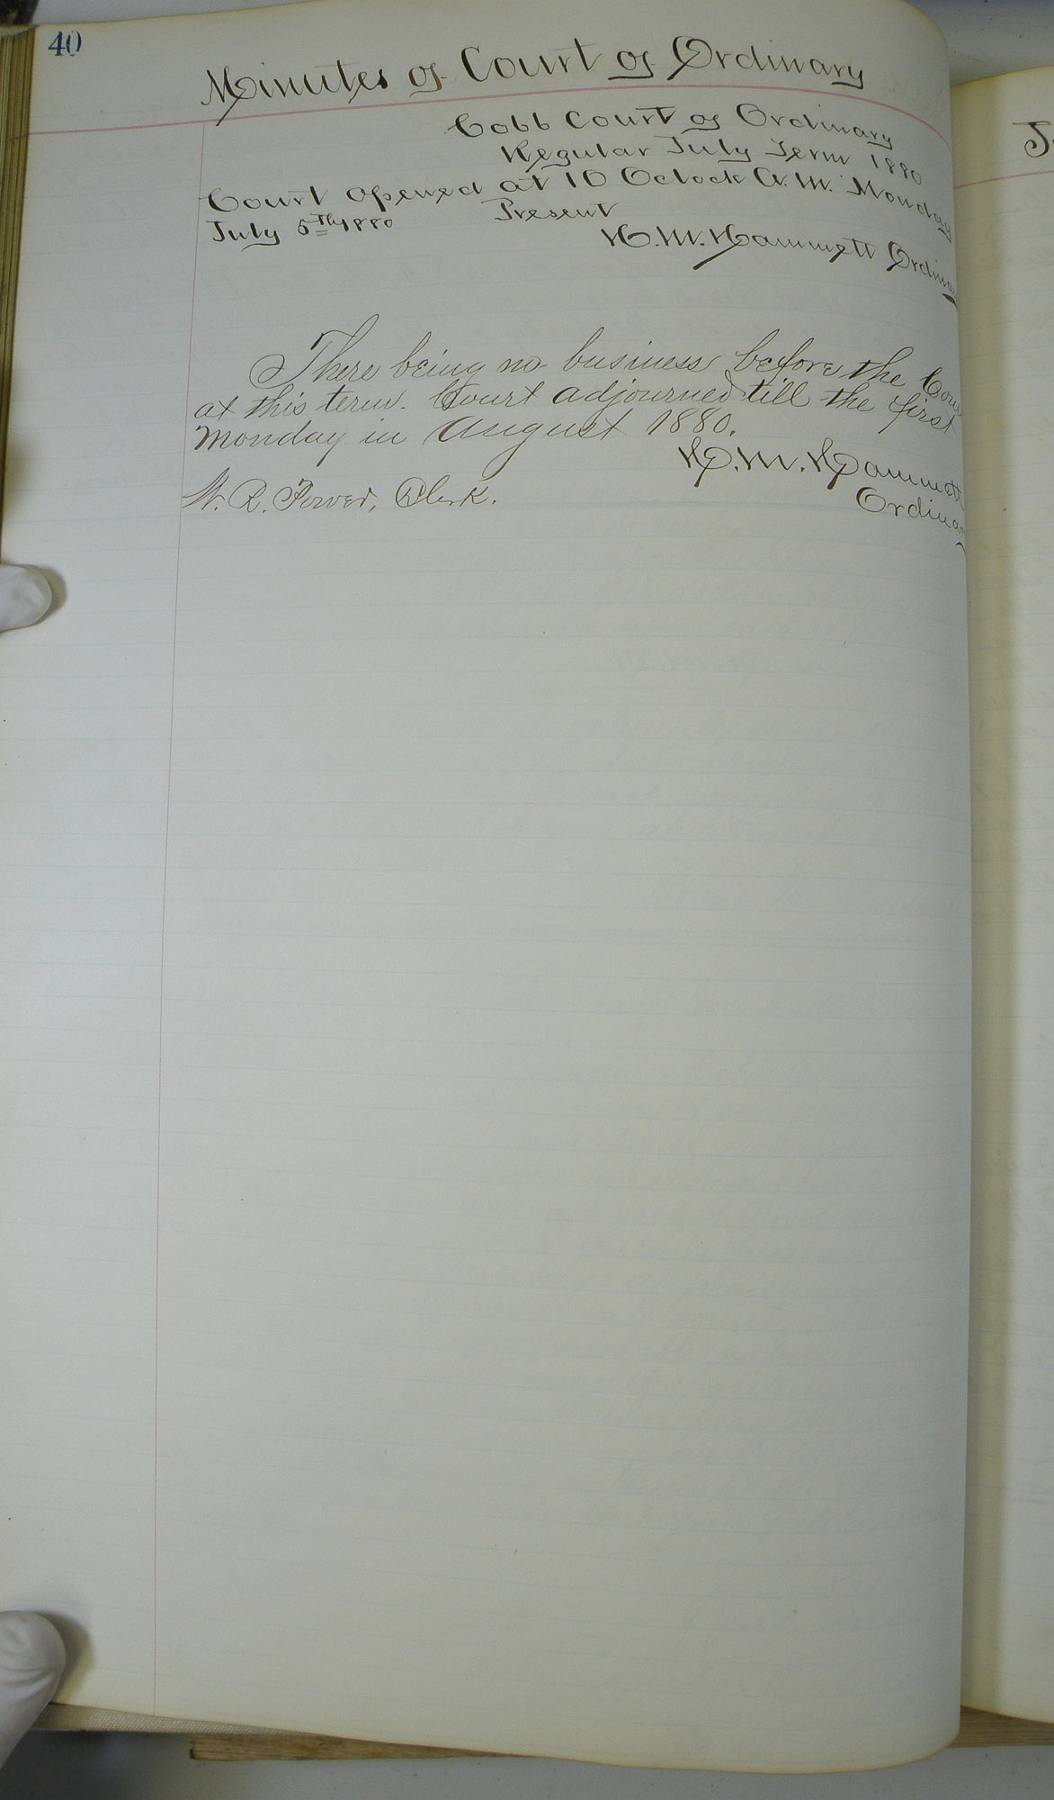 40
Minutes of Court of Ordinary
Cobb Court of Ordinary
Regular July Term 1880
Court opened at 10 Oclock A.M. Monday
July 5th 1880 Present
H.M. Hammett Ordina
There being no business before the Cour
at this term. Court adjourned till the first
Monday in August 1880.
H.M. Hammett
Ordina
W. R. Power, Clerk.